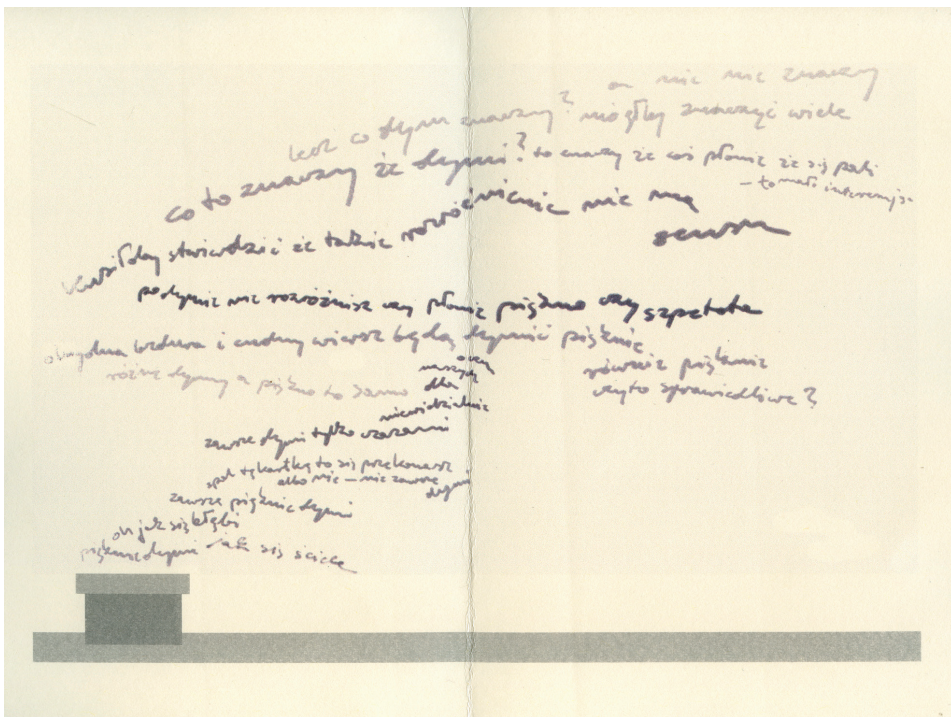 a nic nic znaczy
mógłby znaczyć wiele
co dym znaczy?
co to znaczy że dymi? to znaczy że coś płonie że się pali
– to mało interesuje
stwierdzić że takie rozróżnienie nie ma
sensu
po dymie nie rozróżnisz czy płonie piękno czy szpetota
bzdura i cudny wiersz będą dymić pięknie
równie pięknie
czy to sprawiedliwe?
różne dymy a piękno to samo
dla
niewidzialnie
zawsze dymi tylko czasami
spal tę kartkę to się przekonasz
albo nie – nie zawsze
dymi
zawsze pięknie dymi
och jak się kłębi
pięknie dymi jak się ściele